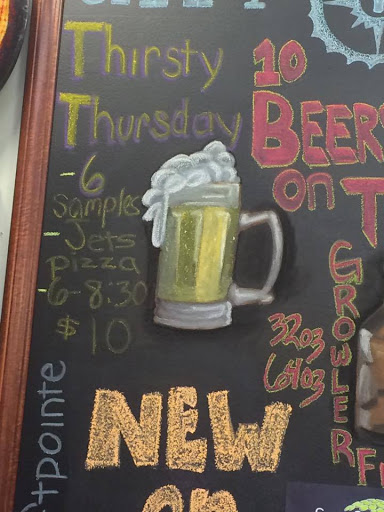 Thirsty
Thursday
- 6
Samples
- Jets
pizza
- 6-8:30
$10
10
BEERS
on T
GROWLER
32oz
64oz
NEW
on